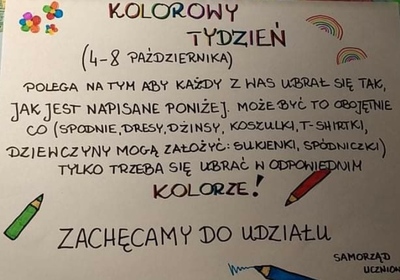 KOLOROWY
TYDZIEŃ
(4-8 PAŹDZIERNIKA)
POLEGA NA TYM ABY KAŻDY Z WAS UBRAŁ SIĘ TAK,
JAK JEST NAPISANE PONIŻEJ. MOŻE BYĆ TO OBOJĘTNIE
CO (SPODNIE, DRESY, DŻINSY, KOSZULKI, T-SHIRTKI,
DZIEWCZYNY MOGĄ ZAŁOŻYĆ: SUKIENKI, SPÓDNICZKI)
TYLKO TRZEBA SIĘ UBRAĆ W ODPOWIEDNIM
KOLORZE!
ZACHĘCAMY DO UDZIAŁU
SAMORZĄD